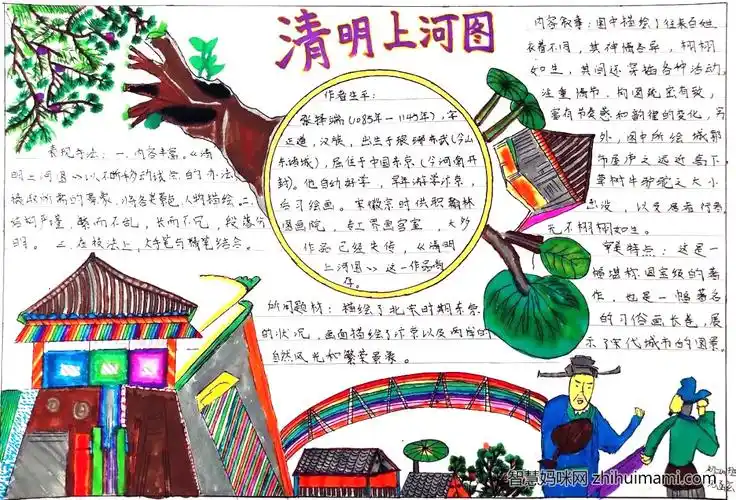 清明上河图
作者生平：
张择端(1085年－1145年)，字
正道，汉族，出生于琅琊东武(今山
东诸城)，居住于中国东京(今河南开
封)。他自幼好学，早年游学汴京，
后习绘画。宋徽宗时供职翰林
图画院，
作品已经失传，《清明
上河图》这一作品尚
存。
表现手法：一、内容丰富。《清
明上河图》以不断移动诗 的办法
摄取所需的景象，将各类 人物描绘。二、
结构严谨，繁而不乱，长而不冗，段落分
明。三、在技法上， 笔与 笔结合。
所画题材：描绘了北宋时期东京
的状况，画面描绘了汴京以及两岸的
自然风光和繁荣景象。
内容叙事：图中描绘了往来百姓
衣着不同，其神情各异，栩栩
如生，其间还穿插各种活动，
注重情节，构图疏密有致，
富有节奏感和韵律的变化，另
外，图中所绘城郭
市屋 之远近高下，
草树牛驴驼之大小
出没，以及居者行者，
无不栩栩如生。
审美特点：这是一
幅堪称国宝级的著
作，也是一幅著名
的习俗画长卷，展
示了宋代城市的图景。
智慧妈咪网 zhihuimami.com